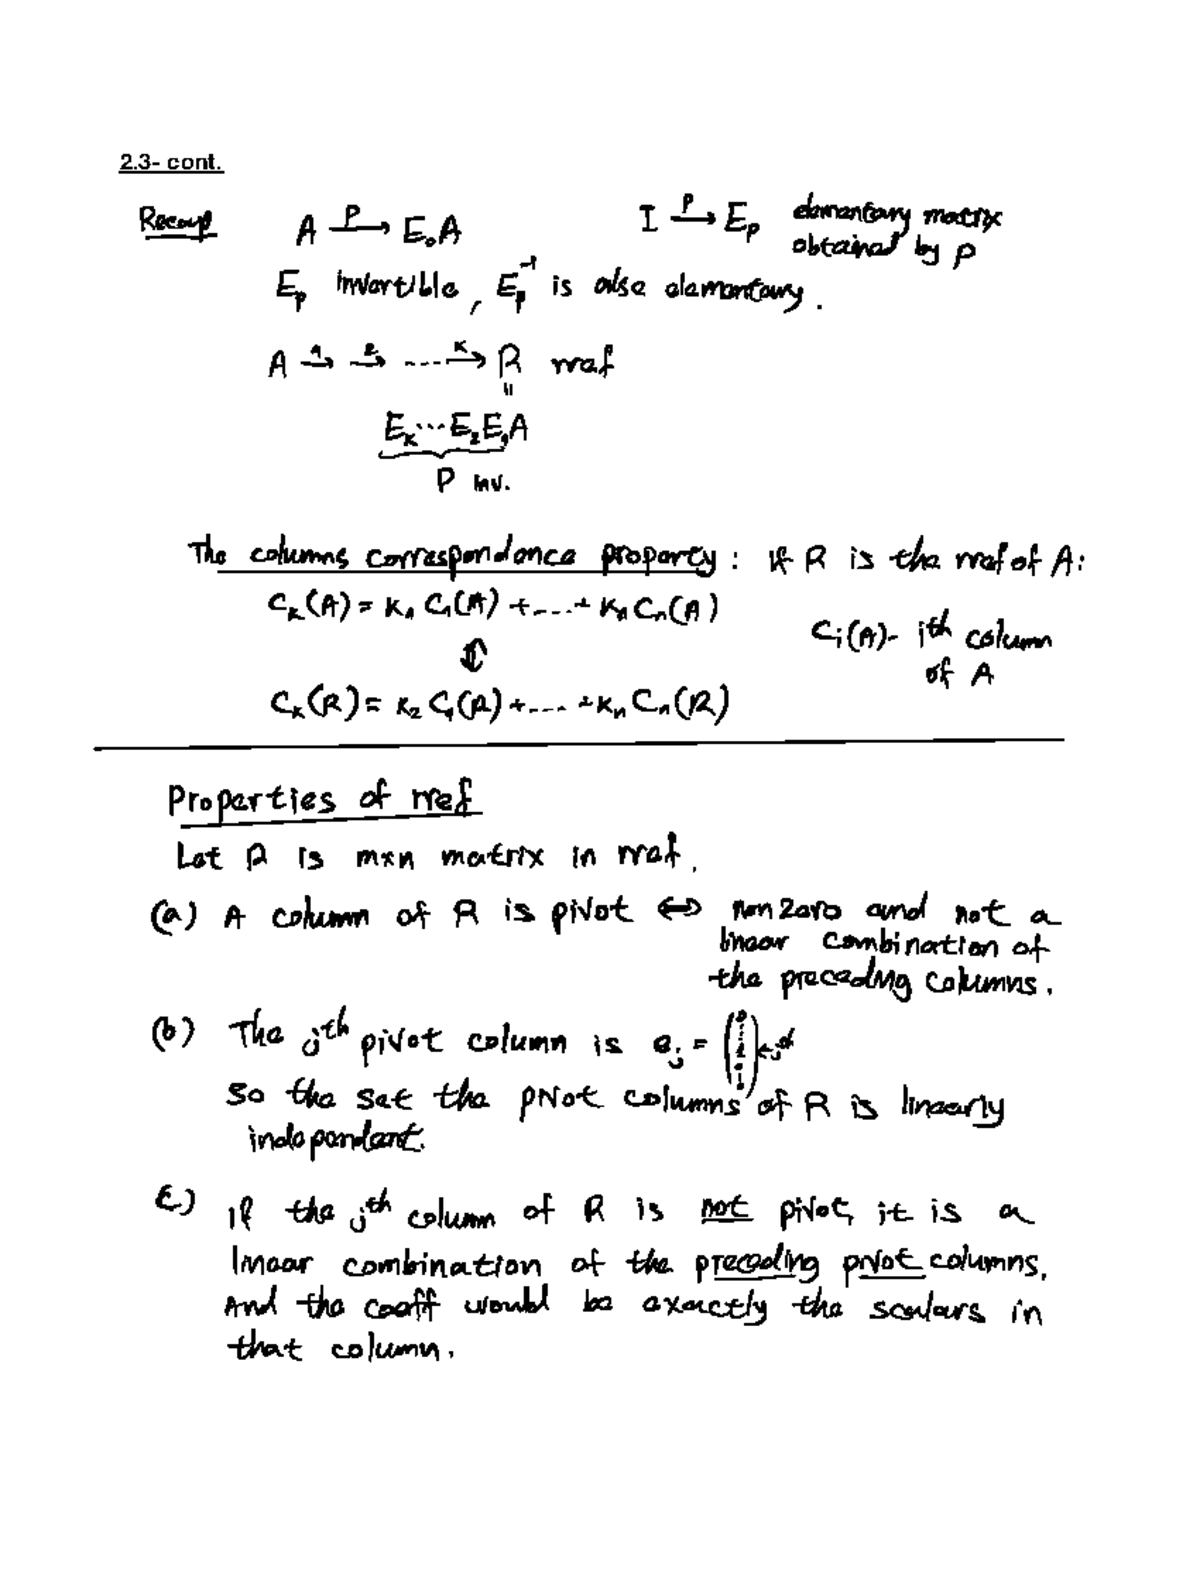 2.3- cont.
Recap A →^P E_pA I →^P E_p elementary matrix
obtained by P
E_p invertible, E_p^{-1} is also elementary.
A →^1 →^2 ....→^K R rref
=
E_K...E_2E_1A
P inv.
The columns correspondence property: if R is the rref of A:
C_k(A) = K_1 C_1(A) +....+ K_n C_n(A)
⇕
C_i(A)- ith column
of A
C_k(R) = K_2 C_1(R) +.... + K_n C_n(R)
Properties of rref
Let R is m×n matrix in rref.
(a) A column of R is pivot ⇔ nonzero and not a
linear combination of
the preceding columns.
(b) The jth pivot column is e_j = (0 ⋮ 1 0 ⋮ 0) ← j
So the set the pivot columns of R is linearly
independent.
c) If the jth column of R is not pivot, it is a
linear combination of the preceding pivot columns.
And the coeff would be exactly the scalars in
that column.